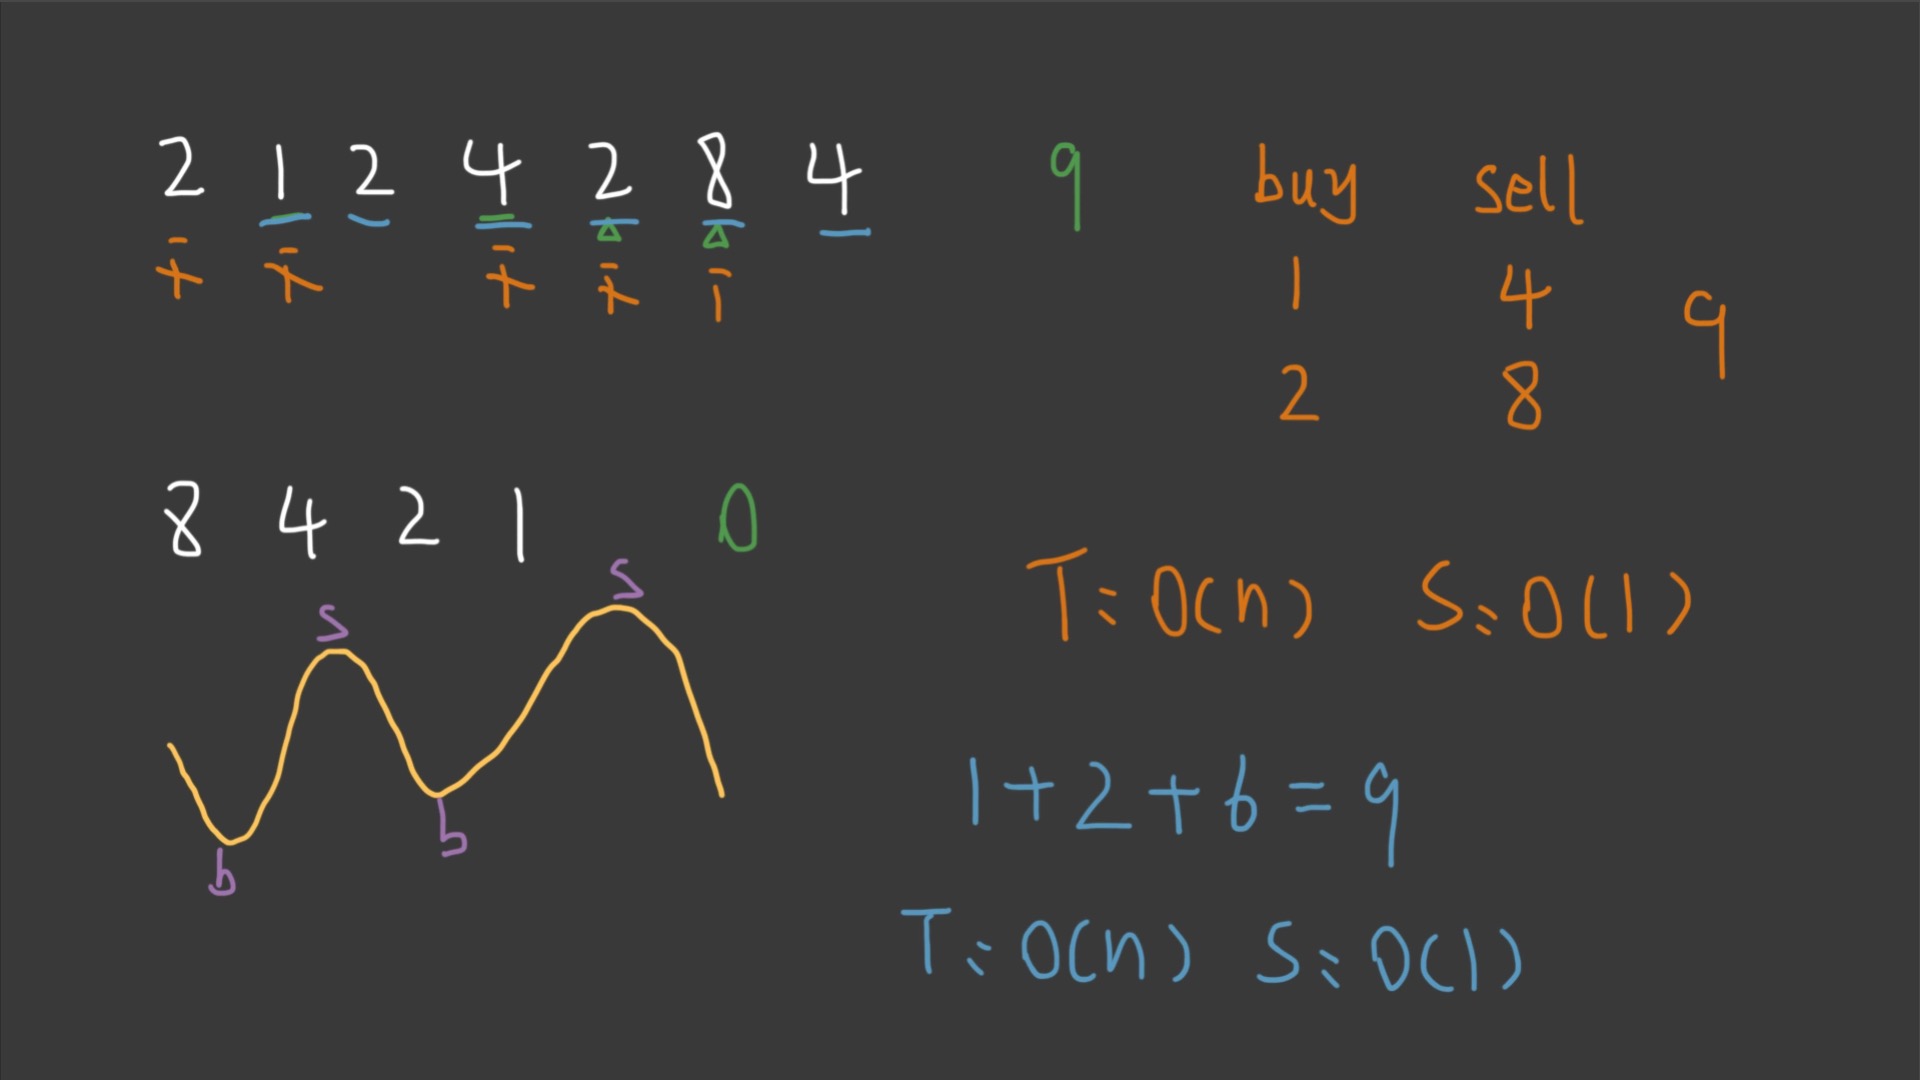 2 1 2 4 2 8 4 9
buy sell
1 4
2 8
9
i i i i i
8 4 2 1 0
s s
b b
T: O(n) S: O(1)
1+2+6=9
T: O(n) S: O(1)